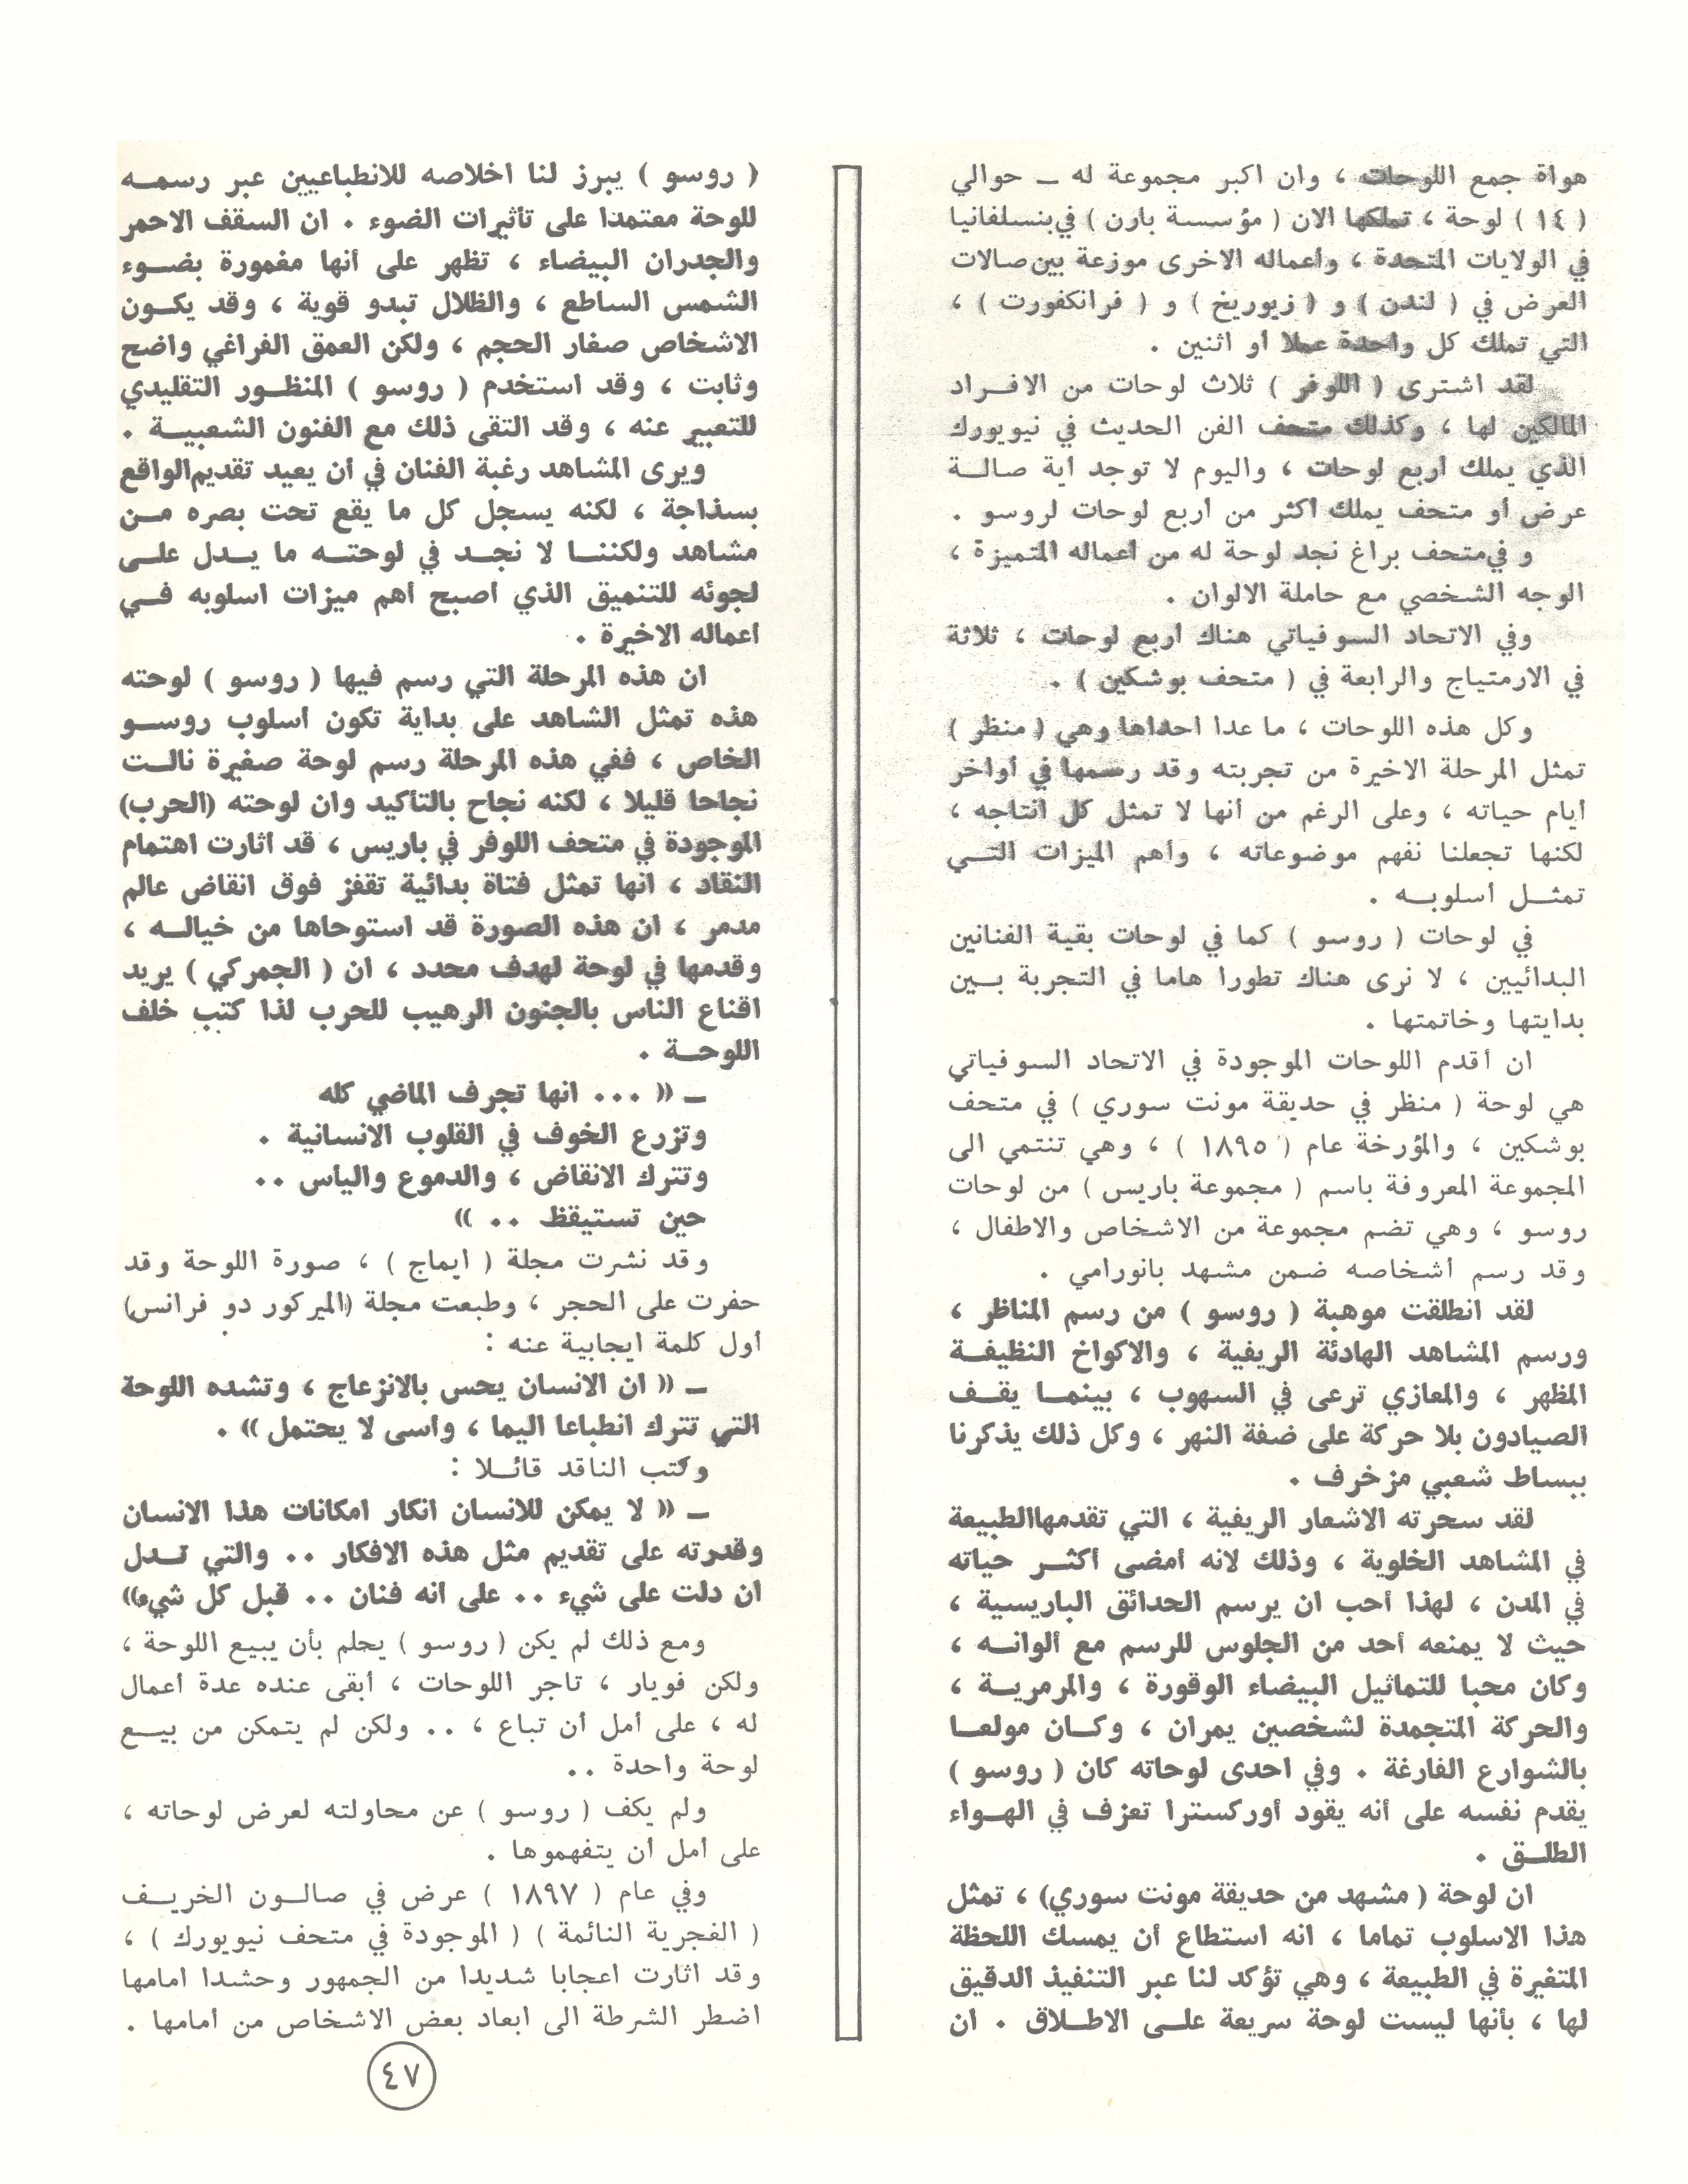 هواة جمع اللوحات ، وان اكبر مجموعة له ــ حوالي
( ١٤ ) لوحة ، تملكها الان ( مؤسسة بارن ) في بنسلفانيا
في الولايات المتحدة ، وأعماله الاخرى موزعة بين صالات
العرض في ( لندن ) و ( زيوريخ ) و ( فرانكفورت ) ،
التي تملك كل واحدة عملا أو اثنين .
لقد اشترى ( اللوفر ) ثلاث لوحات من الافـراد
المالكين لها ، وكذلك متحف الفن الحديث في نيويورك
الذي يملك أربع لوحات ، واليوم لا توجد أية صالـة
عرض أو متحف يملك أكثر من أربع لوحات لروسو .
و في متحف براغ نجد لوحة له من أعماله المتميزة ،
الوجه الشخصي مع حاملة الالوان .
وفي الاتحاد السوفياتي هناك أربع لوحات ، ثلاثة
في الارمتياج والرابعة في ( متحف بوشكين ) .
وكل هذه اللوحات ، ما عدا احداها وهي ( منظر )
تمثل المرحلة الاخيرة من تجربته وقد رسمها في أواخر
أيام حياته ، وعلى الرغم من أنها لا تمثل كل انتاجه ،
لكنها تجعلنا نفهم موضوعاته ، وأهم الميزات التــي
تمثــل أسلوبــه .
في لوحات ( روسو ) كما في لوحات بقية الفنانين
البدائيين ، لا نرى هناك تطورا هاما في التجربة بــين
بدايتها وخاتمتها .
ان أقدم اللوحات الموجودة في الاتحاد السوفياتي
هي لوحة ( منظر في حديقة مونت سوري ) في متحف
بوشكين ، والمؤرخة عام ( ١٨٩٥ ) ، وهي تنتمي الى
المجموعة المعروفة باسم ( مجموعة باريس ) من لوحات
روسو ، وهي تضم مجموعة من الاشخاص والاطفال ،
وقد رسم أشخاصه ضمن مشهد بانورامي .
لقد انطلقت موهبة ( روسو ) من رسم المناظر ،
ورسم المشاهد الهادئة الريفية ، والاكواخ النظيفـة
المظهر ، والمعازي ترعى في السهوب ، بينمـا يقـف
الصيادون بلا حركة على ضفة النهر ، وكل ذلك يذكرنا
ببساط شعبي مزخرف .
لقد سحرته الاشعار الريفية ، التي تقدمهاالطبيعة
في المشاهد الخلوية ، وذلك لانه أمضى أكثـر حياته
في المدن ، لهذا أحب ان يرسم الحدائق الباريسية ،
حيث لا يمنعه أحد من الجلوس للرسم مع ألوانـه ،
وكان محبا للتماثيل البيضاء الوقورة ، والمرمريـة ،
والحركة المتجمدة لشخصين يمران ، وكـان مولعـا
بالشوارع الفارغة . وفي احدى لوحاته كان ( روسو )
يقدم نفسه على أنه يقود أوركسترا تعزف في الهـواء
الطلـق .
ان لوحة ( مشهد من حديقة مونت سوري) ، تمثل
هذا الاسلوب تماما ، انه استطاع أن يمسك اللحظة
المتغيرة في الطبيعة ، وهي تؤكد لنا عبر التنفيذ الدقيق
لها ، بأنها ليست لوحة سريعة علـى الاطـلاق . ان
( روسو ) يبرز لنا اخلاصه للانطباعيين عبر رسمـه
للوحة معتمدا على تأثيرات الضوء . ان السقف الاحمر
والجدران البيضاء ، تظهر على أنها مغمورة بضـوء
الشمس الساطع ، والظلال تبدو قوية ، وقد يكـون
الاشخاص صغار الحجم ، ولكن العمق الفراغي واضح
وثابت ، وقد استخدم ( روسو ) المنظـور التقليدي
للتعبير عنه ، وقد التقى ذلك مع الفنون الشعبيـة .
ويرى المشاهد رغبة الفنان في أن يعيد تقديم الواقع
بسذاجة ، لكنه يسجل كل ما يقع تحت بصره مـن
مشاهد ولكننـا لا نجـد في لوحتـه ما يـدل علـى
لجوئه للتنميق الذي أصبح أهم ميزات اسلوبه فـي
أعماله الاخيرة .
ان هذه المرحلة التي رسم فيها ( روسو ) لوحته
هذه تمثل الشاهد على بداية تكون أسلوب روسـو
الخاص ، ففي هذه المرحلة رسم لوحة صغيرة نالـت
نجاحا قليلا ، لكنه نجاح بالتأكيد وان لوحته (الحرب)
الموجودة في متحف اللوفر في باريس ، قد اثارت اهتمام
النقاد ، انها تمثل فتاة بدائية تقفز فوق انقاض عالم
مدمر ، ان هذه الصورة قد استوحاها من خيالـه ،
وقدمها في لوحة لهدف محدد ، ان ( الجمركي ) يريد
اقناع الناس بالجنون الرهيب للحرب لذا كتب خلف
اللوحـة .
ــ « ... انها تجرف الماضي كله
وتزرع الخوف في القلوب الانسانية .
وتترك الانقاض ، والدموع والياس ..
حين تستيقظ .. »
وقد نشرت مجلة ( ايماج ) ، صورة اللوحة وقد
حفرت على الحجر ، وطبعت مجلة (الميركور دو فرانس)
أول كلمة ايجابية عنه :
ــ « ان الانسان يحس بالانزعاج ، وتشده اللوحة
التي تترك انطباعا اليما ، واسى لا يحتمل » .
وكتب الناقد قائـلا :
ــ « لا يمكن للانسان انكار امكانات هذا الانسان
وقدرته على تقديم مثل هذه الافكار .. والتي تـدل
ان دلت على شيء .. على انه فنان .. قبل كل شيء»
ومع ذلك لم يكن ( روسو ) يحلم بأن يبيع اللوحة ،
ولكن فويار ، تاجر اللوحات ، أبقى عنده عدة أعمال
له ، على أمل أن تباع ، .. ولكن لم يتمكن من بيــع
لوحة واحدة ..
ولم يكف ( روسو ) عن محاولته لعرض لوحاته ،
على أمل أن يتفهموها .
وفي عام ( ١٨٩٧ ) عرض في صالــون الخريــف
( الغجرية النائمة ) ( الموجودة في متحف نيويورك ) ،
وقد أثارت اعجابا شديدا من الجمهور وحشدا أمامها
اضطر الشرطة الى ابعاد بعض الاشخاص من أمامها .
٤٧